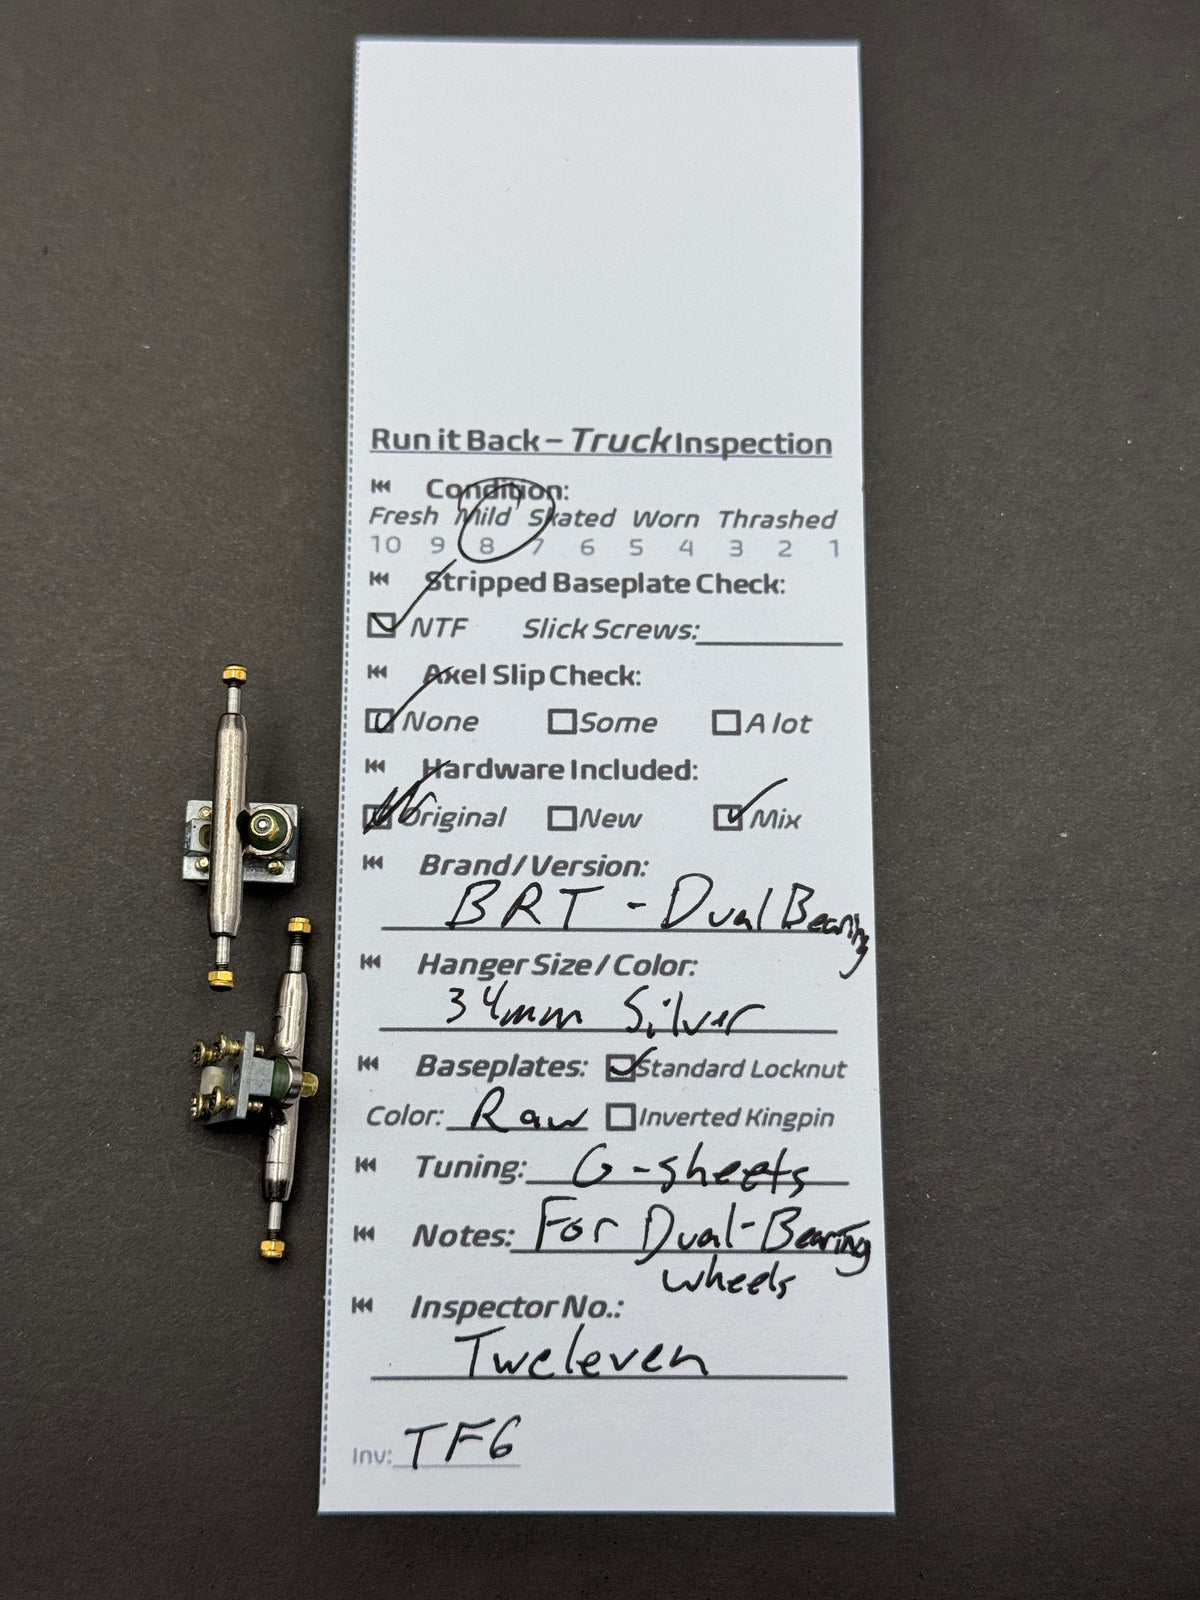 Run it Back – Truck Inspection
Condition:
Fresh Mild Skated Worn Thrashed
10 9 8 7 6 5 4 3 2 1
Stripped Baseplate Check:
NTF Slick Screws:
Axel Slip Check:
None Some A lot
Hardware Included:
Original New Mix
Brand / Version:
BRT - Dual Bearing
Hanger Size / Color:
34mm Silver
Baseplates: Standard Locknut
Color: Raw Inverted Kingpin
Tuning: G-sheets
Notes: For Dual-Bearing
wheels
Inspector No.:
Tweleven
Inv: TF6